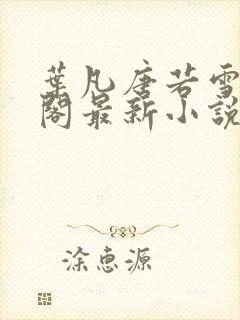 葉凡唐若雪
閣最新小說
涂惠源